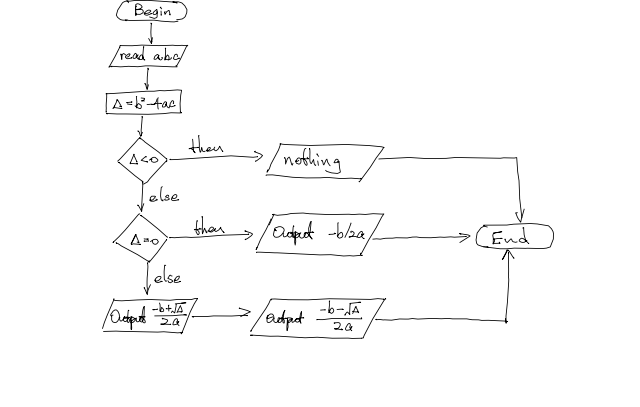 Begin
read abc
Δ=b²-4ac
Δ<0
then
nothing
else
Δ=0
then
Output -b/2a
End
else
Output (-b+√Δ)/2a
Output (-b-√Δ)/2a